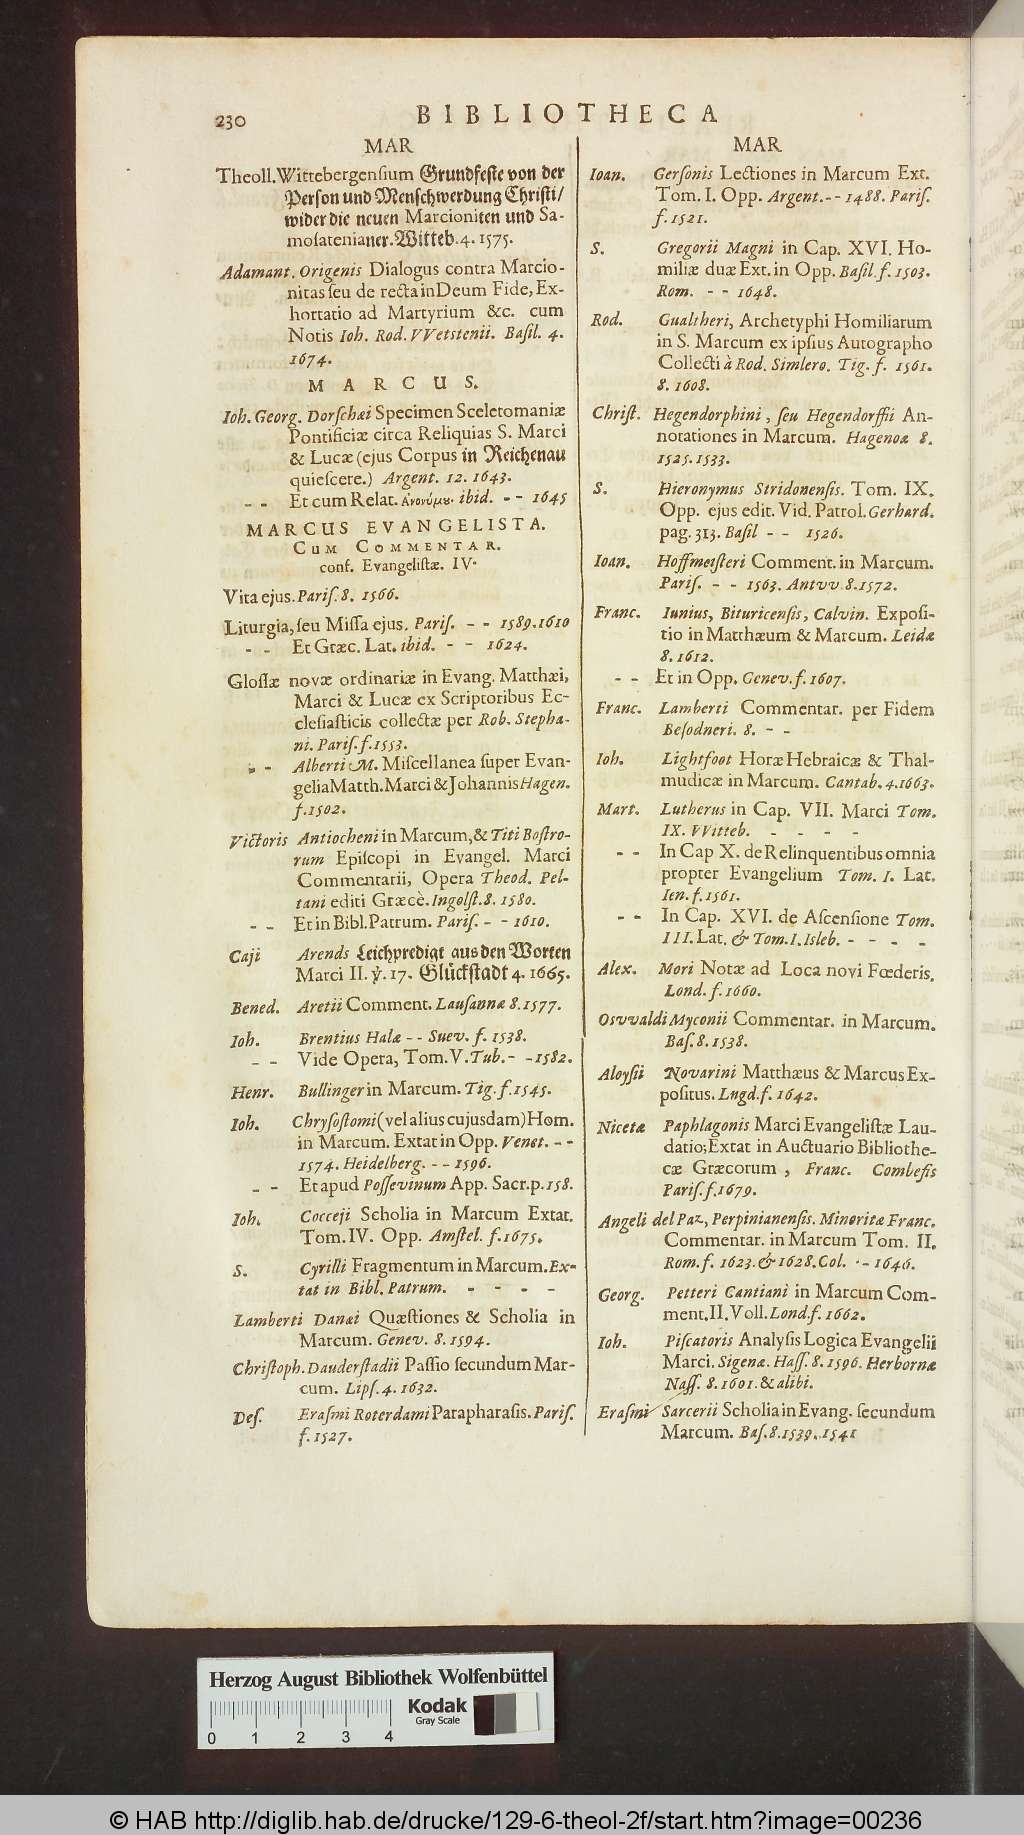 230
BIBLIOTHECA
MAR
Theoll. Wittebergensium Grundfeste von der
Person und Menschwerdung Christi/
wider die neuen Marcioniten und Sa-
mosatenianer. Witteb. 4. 1575.
Adamant. Origenis Dialogus contra Marcio-
nitas seu de recta in Deum Fide, Ex-
hortatio ad Martyrium &c. cum
Notis Ioh. Rod. VVetstenii. Basil. 4.
1674.
MARCUS.
Ioh. Georg. Dorschæi Specimen Sceletomaniæ
Pontificiæ circa Reliquias S. Marci
& Lucæ (ejus Corpus in Reichenau
quiescere.) Argent. 12. 1643.
- - Et cum Relat. Ἀνονύμȣ. ibid. - - 1645
MARCUS EVANGELISTA.
CUM COMMENTAR.
conf. Evangelistæ. IV.
Vita ejus. Paris. 8. 1566.
Liturgia, seu Missa ejus. Paris. - - 1589. 1610
- - Et Græc. Lat. ibid. - - 1624.
Glossæ novæ ordinariæ in Evang. Matthæi,
Marci & Lucæ ex Scriptoribus Ec-
clesiasticis collectæ per Rob. Stepha-
ni. Paris. f. 1553.
- - Alberti M. Miscellanea super Evan-
gelia Matth. Marci & Johannis Hagen.
f. 1502.
Victoris Antiocheni in Marcum, & Titi Bostro-
rum Episcopi in Evangel. Marci
Commentarii, Opera Theod. Pel-
tani editi Græcè. Ingolst. 8. 1580.
- - Et in Bibl. Patrum. Paris. - - 1610.
Caji Arends Leichpredigt aus den Worten
Marci II. ℣. 17. Glückstadt 4. 1665.
Bened. Aretii Comment. Lausannæ 8. 1577.
Ioh. Brentius Halæ - - Suev. f. 1538.
- - Vide Opera, Tom. V. Tub. - - 1582.
Henr. Bullinger in Marcum. Tig. f. 1545.
Ioh. Chrysostomi (vel alius cujusdam) Hom.
in Marcum. Extat in Opp. Venet. - -
1574. Heidelberg. - - 1596.
- - Et apud Possevinum App. Sacr. p. 158.
Ioh. Cocceji Scholia in Marcum Extat.
Tom. IV. Opp. Amstel. f. 1675.
S. Cyrilli Fragmentum in Marcum. Ex-
tat in Bibl. Patrum. - - - -
Lamberti Danæi Quæstiones & Scholia in
Marcum. Genev. 8. 1594.
Christoph. Dauderstadii Passio secundum Mar-
cum. Lips. 4. 1632.
Des. Erasmi Roterdami Parapharasis. Paris.
f. 1527.
MAR
Ioan. Gersonis Lectiones in Marcum Ext.
Tom. I. Opp. Argent. - - 1488. Paris.
f. 1521.
S. Gregorii Magni in Cap. XVI. Ho-
miliæ duæ Ext. in Opp. Basil. f. 1503.
Rom. - - 1648.
Rod. Gualtheri, Archetyphi Homiliarum
in S. Marcum ex ipsius Autographo
Collecti à Rod. Simlero. Tig. f. 1561.
8. 1608.
Christ. Hegendorphini, seu Hegendorffii An-
notationes in Marcum. Hagenoæ 8.
1525. 1533.
S. Hieronymus Stridonensis. Tom. IX.
Opp. ejus edit. Vid. Patrol. Gerhard.
pag. 313. Basil - - 1526.
Ioan. Hoffmeisteri Comment. in Marcum.
Paris. - - 1563. Antvv 8. 1572.
Franc. Iunius, Bituricensis, Calvin. Exposi-
tio in Matthæum & Marcum. Leidæ
8. 1612.
- - Et in Opp. Genev. f. 1607.
Franc. Lamberti Commentar. per Fidem
Besodneri. 8. - -
Ioh. Lightfoot Horæ Hebraicæ & Thal-
mudicæ in Marcum. Cantab. 4. 1663.
Mart. Lutherus in Cap. VII. Marci Tom.
IX. VVitteb. - - - -
- - In Cap X. de Relinquentibus omnia
propter Evangelium Tom. I. Lat.
Ien. f. 1561.
- - In Cap. XVI. de Ascensione Tom.
III. Lat. & Tom. I. Isleb. - - - -
Alex. Mori Notæ ad Loca novi Fœderis.
Lond. f. 1660.
Osvvaldi Myconii Commentar. in Marcum.
Bas. 8. 1538.
Aloysii Novarini Matthæus & Marcus Ex-
positus. Lugd. f. 1642.
Nicetæ Paphlagonis Marci Evangelistæ Lau-
datio; Extat in Auctuario Bibliothe-
cæ Græcorum, Franc. Combefis
Paris. f. 1679.
Angeli del Paz, Perpinianensis. Minoritæ Franc.
Commentar. in Marcum Tom. II.
Rom. f. 1623. & 1628. Col. - - 1646.
Georg. Petteri Cantiani in Marcum Com-
ment. II. Voll. Lond. f. 1662.
Ioh. Piscatoris Analysis Logica Evangelii
Marci. Sigenæ. Hass. 8. 1596. Herbornæ
Nass. 8. 1601. & alibi.
Erasmi Sarcerii Scholia in Evang. secundum
Marcum. Bas. 8. 1539. 1541
Herzog August Bibliothek Wolfenbüttel
Kodak
Gray Scale
0 1 2 3 4
© HAB http://diglib.hab.de/drucke/129-6-theol-2f/start.htm?image=00236